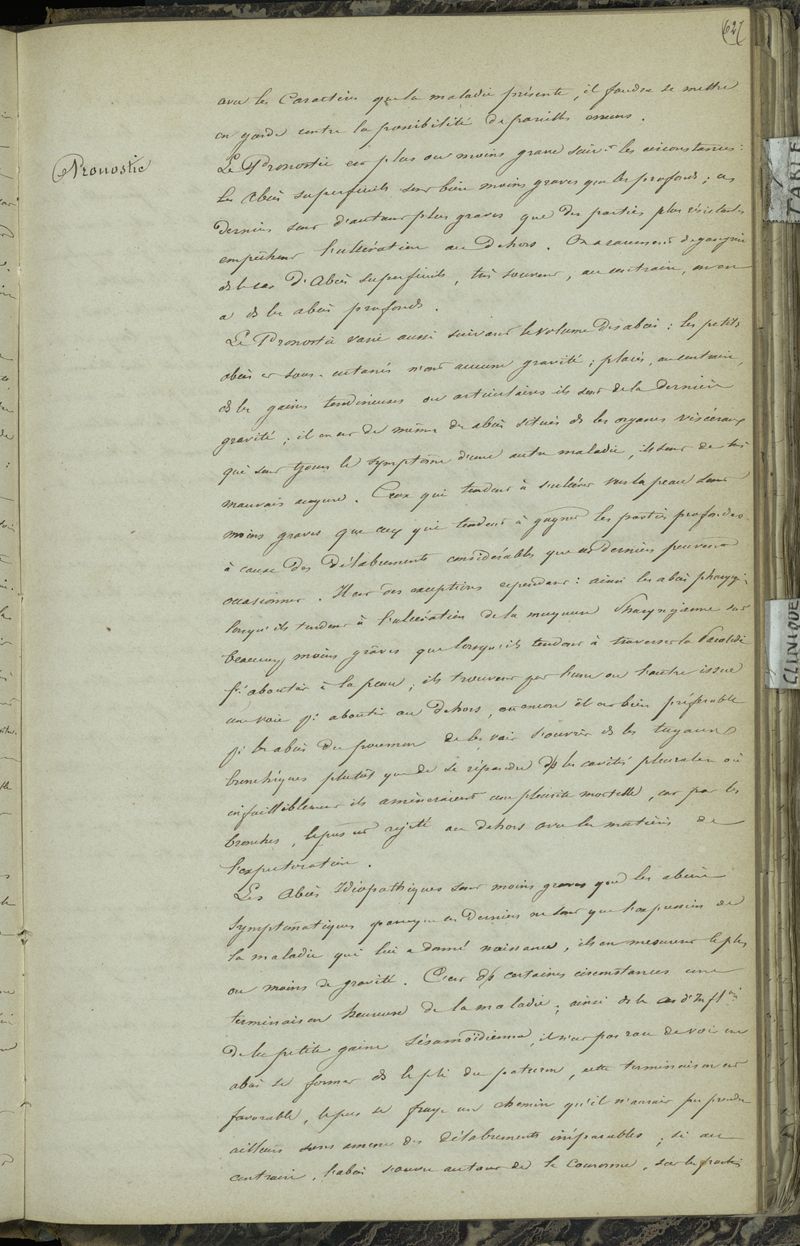 (62)
avec les Caractères que la maladie présente, il faudra se mettre
en garde contre la possibilité de pareilles erreurs.
Pronostic
Le Pronostic est plus ou moins grave suivt les circonstances:
Les Abcès superficiels sont bien moins graves que les profonds; ces
derniers sont d'autant plus graves que des parties plus résistantes
empêchent l'ulcération au dehors. On a rarement de gangrène
ds le cas d'Abcès superficiels, très souvent, au contraire, on en
a ds les abcès profonds.
Le Pronostic varie aussi suivant le volume des abcès: les petits
abcès et sous-cutanés n'ont aucune gravité; placés, au contraire,
ds les gaines tendineuses ou articulaires ils sont de la dernière
gravité; il en est de même des abcès situés ds les organes viscéraux
qui sont tjours le symptôme d'une autre maladie; ils sont de très
mauvais augure. Ceux qui tendent à s'ulcérer vers la peau sont
moins graves que ceux qui tendent à gagner les parties profondes
à cause des délabrements considérables que ces derniers peuvent
occasionner. Il est des exceptions cependant: ainsi les abcès pharyng.
lorsqu'ils tendent à l'ulcération de la muqueuse Pharyngienne sont
beaucoup moins graves que lorsqu'ils tendent à traverser la Parotide
pr aboutir à la peau; ils trouvent par l'une ou l'autre issue
une voie pr aboutir au dehors, ou encore il est bien préférable
pr les abcès du poumon de les voir s'ouvrir ds les tuyaux
bronchiques plutôt que de se répandre ds les cavités pleurales où
infailliblement ils amèneraient une pleurite mortelle, car par les
bronches, le pus est rejeté au dehors avec les matières de
l'expectoration.
Les Abcès Idiopathiques sont moins graves que les abcès
symptomatiques parceque ces Derniers ne sont que l'expression de
la maladie qui lui a donné naissance, ils en mesurent le plus
ou moins de gravité. C'est ds certaines circonstances une
terminaison heureuse de la maladie; ainsi ds le cas d'Inflon
de la petite gaine Sésamoïdienne, il n'est pas rare de voir un
abcès se former ds le pli du paturon, cette terminaison est
favorable, le pus se fraye un chemin qu'il n'aurait pu prendre
ailleurs sans amener des délabrements irréparables; si au
contraire, l'abcès s'ouvre autour de la Couronne, sur les parties
TABLE
CLINIQUE